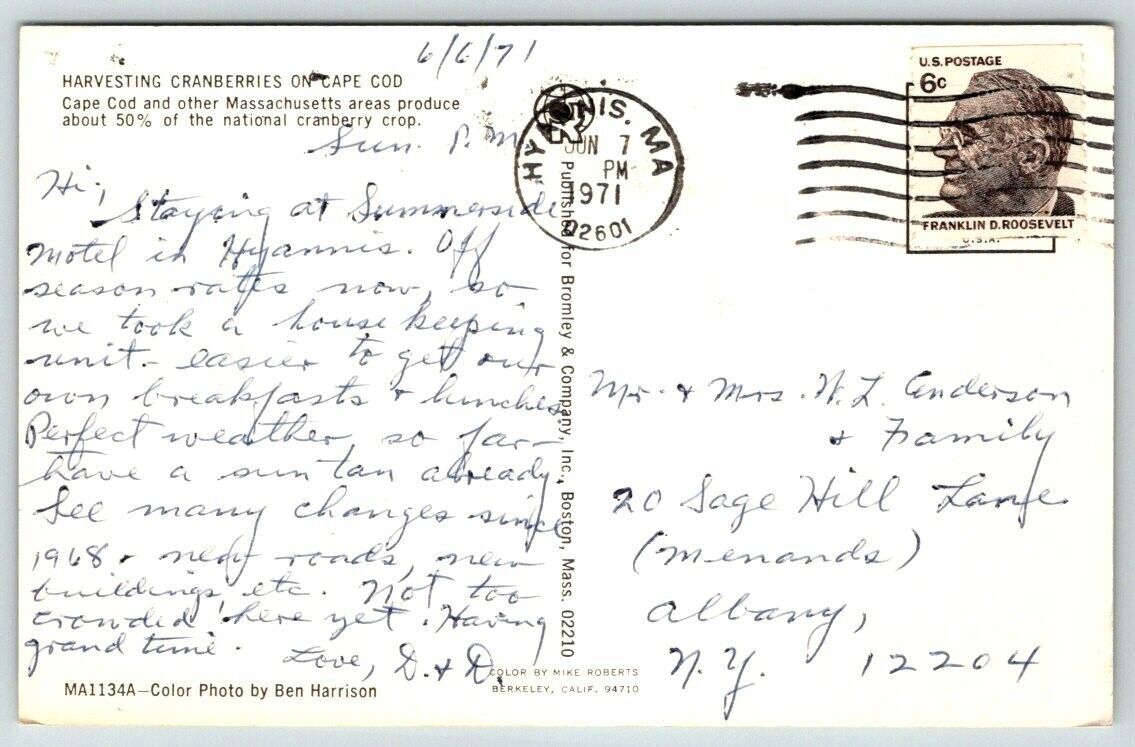 6/6/71
HARVESTING CRANBERRIES ON CAPE COD
Cape Cod and other Massachusetts areas produce
about 50% of the national cranberry crop.
Sun. P.M.
Hi,
Staying at Summerside
Motel in Hyannis. Off
season rates now, so
we took a housekeeping
unit - easier to get our
own breakfasts + lunches
Perfect weather, so far -
have a sun tan already
See many changes since
1968 - new roads, new
buildings, etc. Not too
crowded here yet. Having
grand time.
Love, D. + D.
MA1134A—Color Photo by Ben Harrison
Published for Bromley & Company, Inc., Boston, Mass. 02210
COLOR BY MIKE ROBERTS
BERKELEY, CALIF. 94710
HYANNIS, MA
JUN 7
PM
1971
02601
U.S. POSTAGE
6c
FRANKLIN D. ROOSEVELT
U.S.A.
Mr. + Mrs. W. L. Anderson
+ Family
20 Sage Hill Lane
(Menands)
Albany,
N.Y. 12204